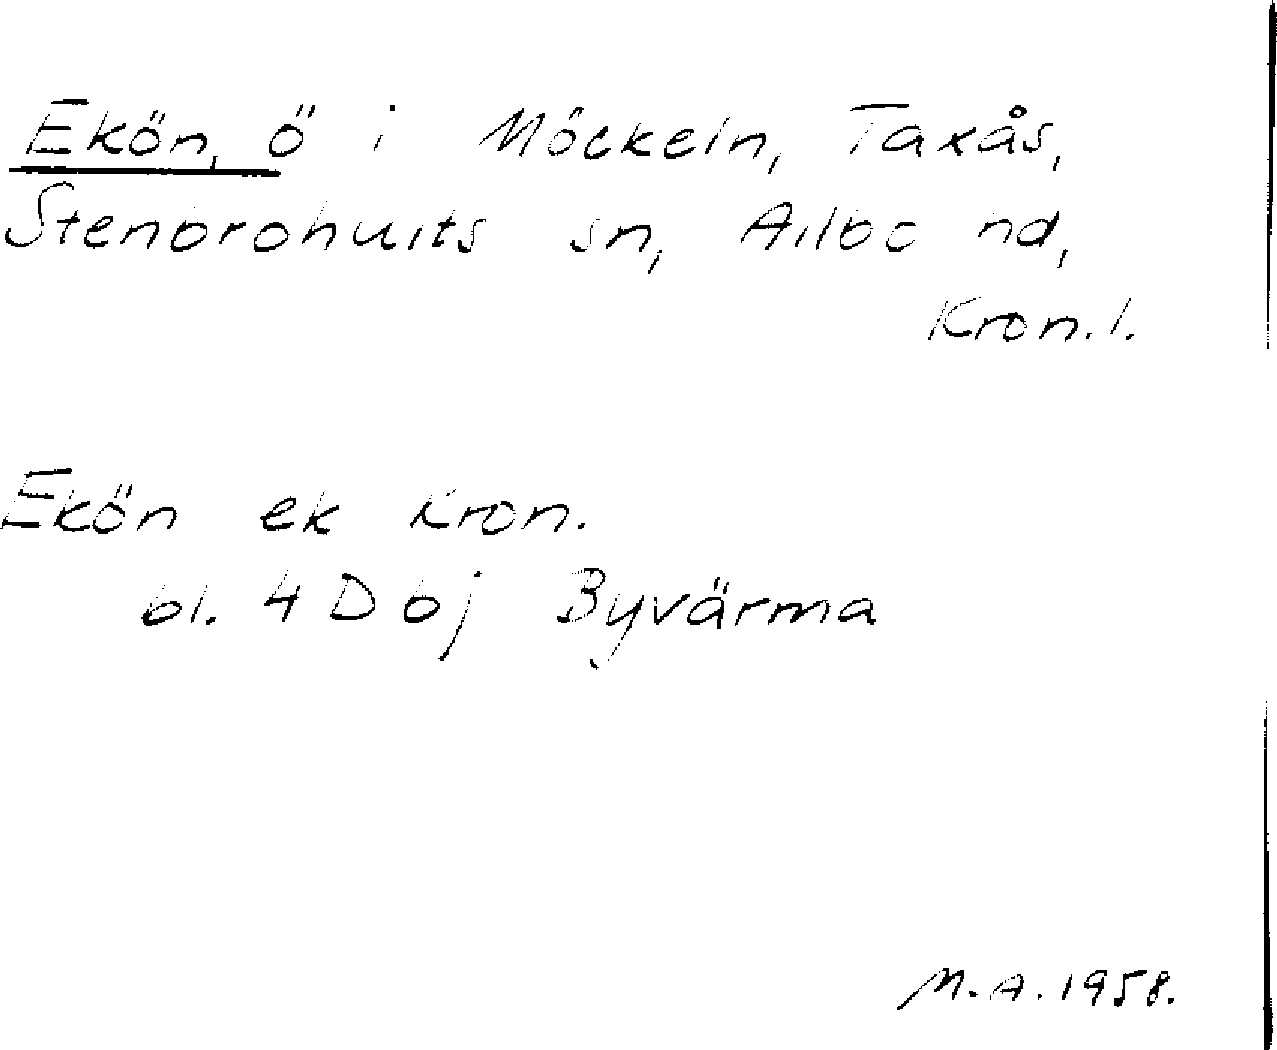 Ekön, ö i Möckeln, Taxås,
Stenbrohults sn, Allbo hd,
Kron. l.
Ekön ek Kron.
bl. 4 D bj Byvärma
M. A. 1958.